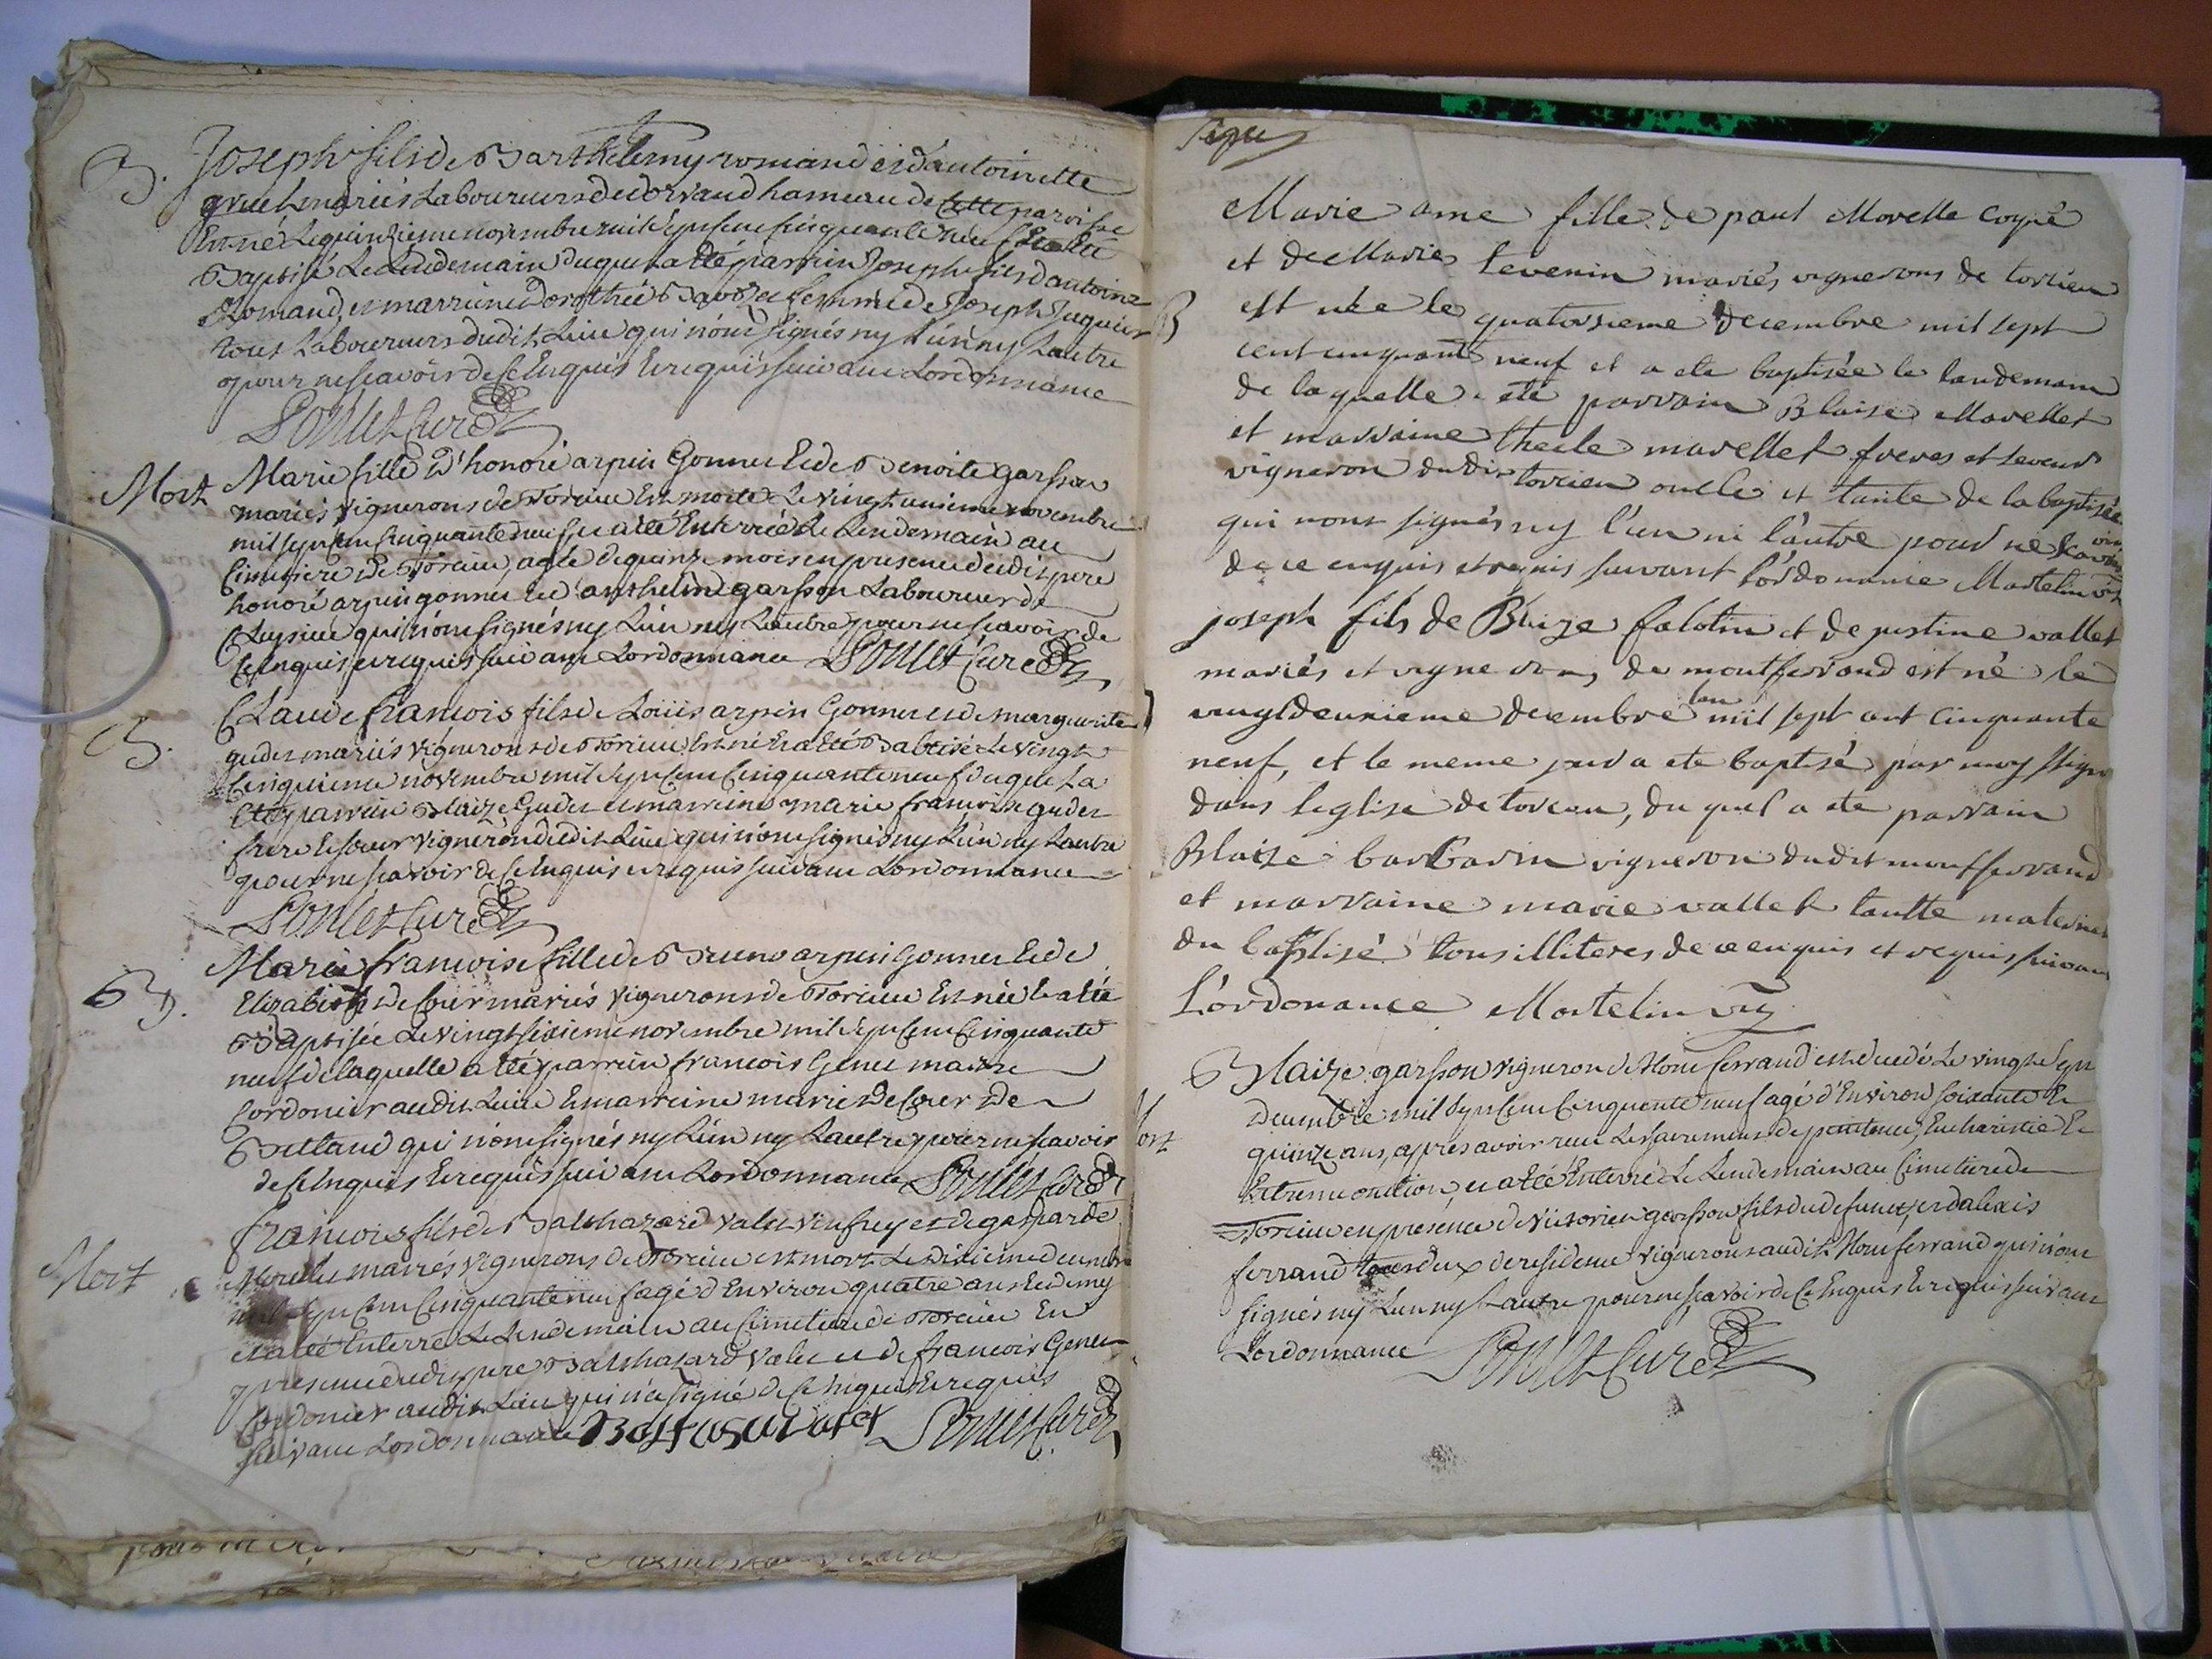 B. Joseph fils de Barthelemy romand et d'antoinette
mariés Laboureurs de dorvand hameau de cette paroisse
Est né Le quinzieme novembre mil sept cent cinquante neuf Et a Eté
Baptisé Le Lendemain duquel a été parrin Joseph fils d'antoine
Romand, et marreine dorothée femme de Joseph Juguet
tous Laboureurs dudit Lieu qui n'ont signés ny L'un ny L'autre
pour ne scavoir de ce Enquis Et requis suivant L'ordonnance
Ponset Curé
Mort Marie fille d'honoré arpin Gonnet Et de Benoite garsson
mariés vignerons de Torcieu Est morte Le vingt unieme novembre
mil sept cent cinquante neuf et a été Enterrée Le Lendemain au
Cimetiere de Torcieu, agée de quinze mois en presence dudit pere
honoré arpin gonnet Et d'anthelme garsson Laboureur de
Cleysieu qui n'ont signés ny L'un ny L'autre pour ne scavoir de
ce Enquis, et requis suivant L'ordonnance Ponset Curé
B. Claude francois fils de Loüis arpin Gonnet et de marguerite
gudet mariés vignerons de Torcieu Est né Et a été Baptisé Le vingt
Cinquieme novembre mil sept cent cinquante neuf duquel a
Eté parrin Blaize Gudet et marreine marie francoise gudet
frere et soeur vignerons dudit Lieu qui n'ont signés ny L'un ny L'autre
pour ne scavoir de ce Enquis et requis suivant L'ordonnance
Ponset Curé
B. Marie francoise fille de Bruno arpin Gonnet Et de
Elizabeth de Cour mariés vignerons de Torcieu Est née Et a été
Baptisée Le vingt sixieme novembre mil sept cent cinquante
neuf de laquelle a été parrin francois Genet maitre
Cordonier audit Lieu Et marreine marie de Cour de
qui n'ont signés ny L'un ny L'autre pour ne scavoir
de ce Enquis Et requis suivant L'ordonnance Ponset Curé
Mort francois fils de Balthazard valet vinfrey et de gasparde
Morellet mariés vignerons de Torcieu est mort Le dixieme decembre
mil sept cent cinquante neuf agé d'Environ quatre ans Et demy
et a été Enterré Le Lendemain au Cimetiere de Torcieu En
presence dudit pere Balthazard valet et de francois Genet
Cordonier audit Lieu qui n'a signé de ce Enquis Et requis
suivant L'ordonnance Baltasar valet Ponset Curé
Marie ame fille de paul Morelle
et de Marie Levenin mariés vignerons de torcieu
B est née le quatorsieme decembre mil sept
cent cinquante neuf et a ete baptisée le landemain
de laquelle a ete parrain Blaise Morellet
et marraine thecle morellet freres et seurs
vigneron dudit torcieu oncle et tante de la baptisée
qui n'ont signés ny l'un ni l'autre pour ne scavoir
de ce enquis et requis suivant l'ordonance Martelin vic
joseph fils de Blaize falotin et de justine vallet
mariés et vignerons de montferrand est né le
vingtdeuxieme decembre lan mil sept cent cinquante
neuf, et le meme jour a ete baptisé par moy
dans leglise de torcieu, du quel a ete parrain
Blaise barbarin vigneron dudit montferrand
et marraine marie vallet tante maternel
du baptisé tous illiteres de ce enquis et requis suivant
l'ordonance Martelin vic
Mort Blaize garsson vigneron de Montferrand est decedé Le vingt sept
decembre mil sept cent cinquante neuf agé d'Environ soixante Et
quinze ans, apres avoir recu Les sacremens de penitence, Eucharistie Et
Extreme onction, et a été Enterré Le Lendemain au Cimetiere de
Torcieu en presence de garsson fils du defunt, et d'alexis
ferrand tous deux de residence vignerons audit Montferrand qui n'ont
signés ny L'un ny L'autre pour ne scavoir de ce Enquis Et requis suivant
L'ordonnance Ponset Curé